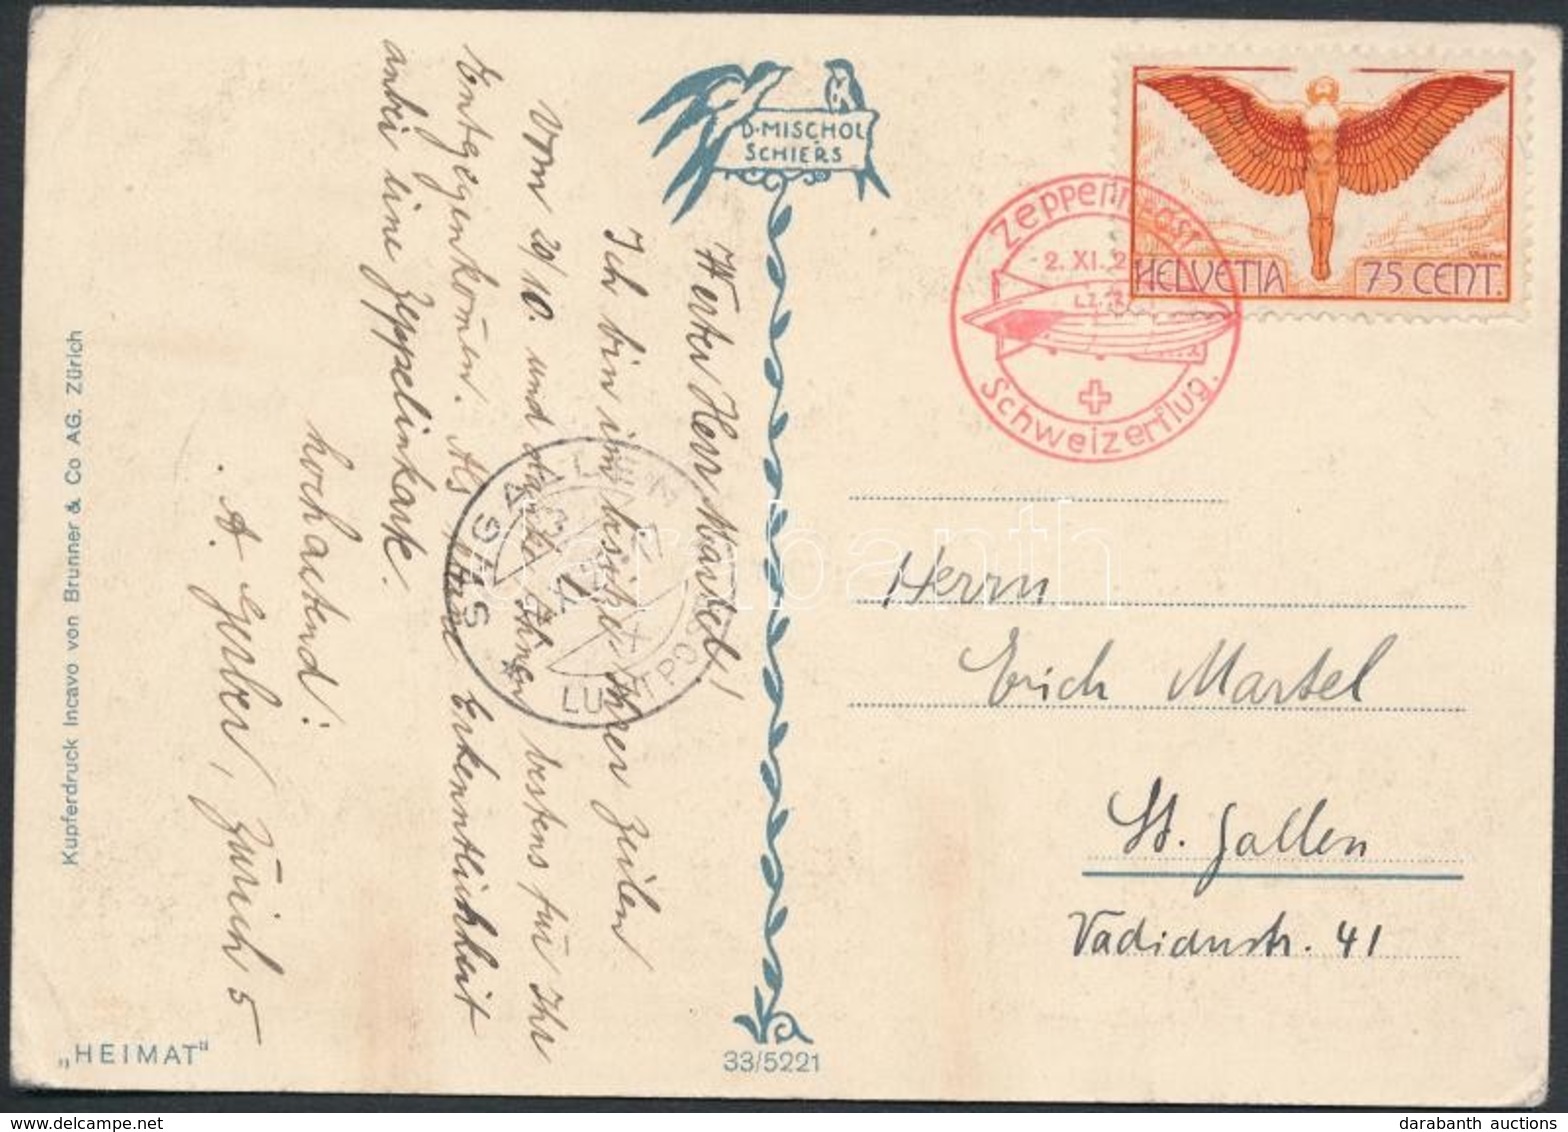 D. MISCHOL
SCHIERS
Werter Herr Martel!
Ich bin im Besitze Ihrer Zeilen
vom 29/10. und danke Ihnen bestens für Ihr
Entgegenkom̄en. Als kleine Erkenntlichkeit
anbei eine Zeppelinkarte.
hochachtend!
A. Gerber, Zürich 5
Kupferdruck Incavo von Brunner & Co AG. Zürich
„HEIMAT"
33/5221
HELVETIA 75 CENT.
Zeppelinpost
2. XI. 2
LZ.
Schweizerflug.
ST. GALLEN
LUFTPOST
Herrn
Erich Martel
St. Gallen
Vadianstr. 41
darabanth
darabanth auctions